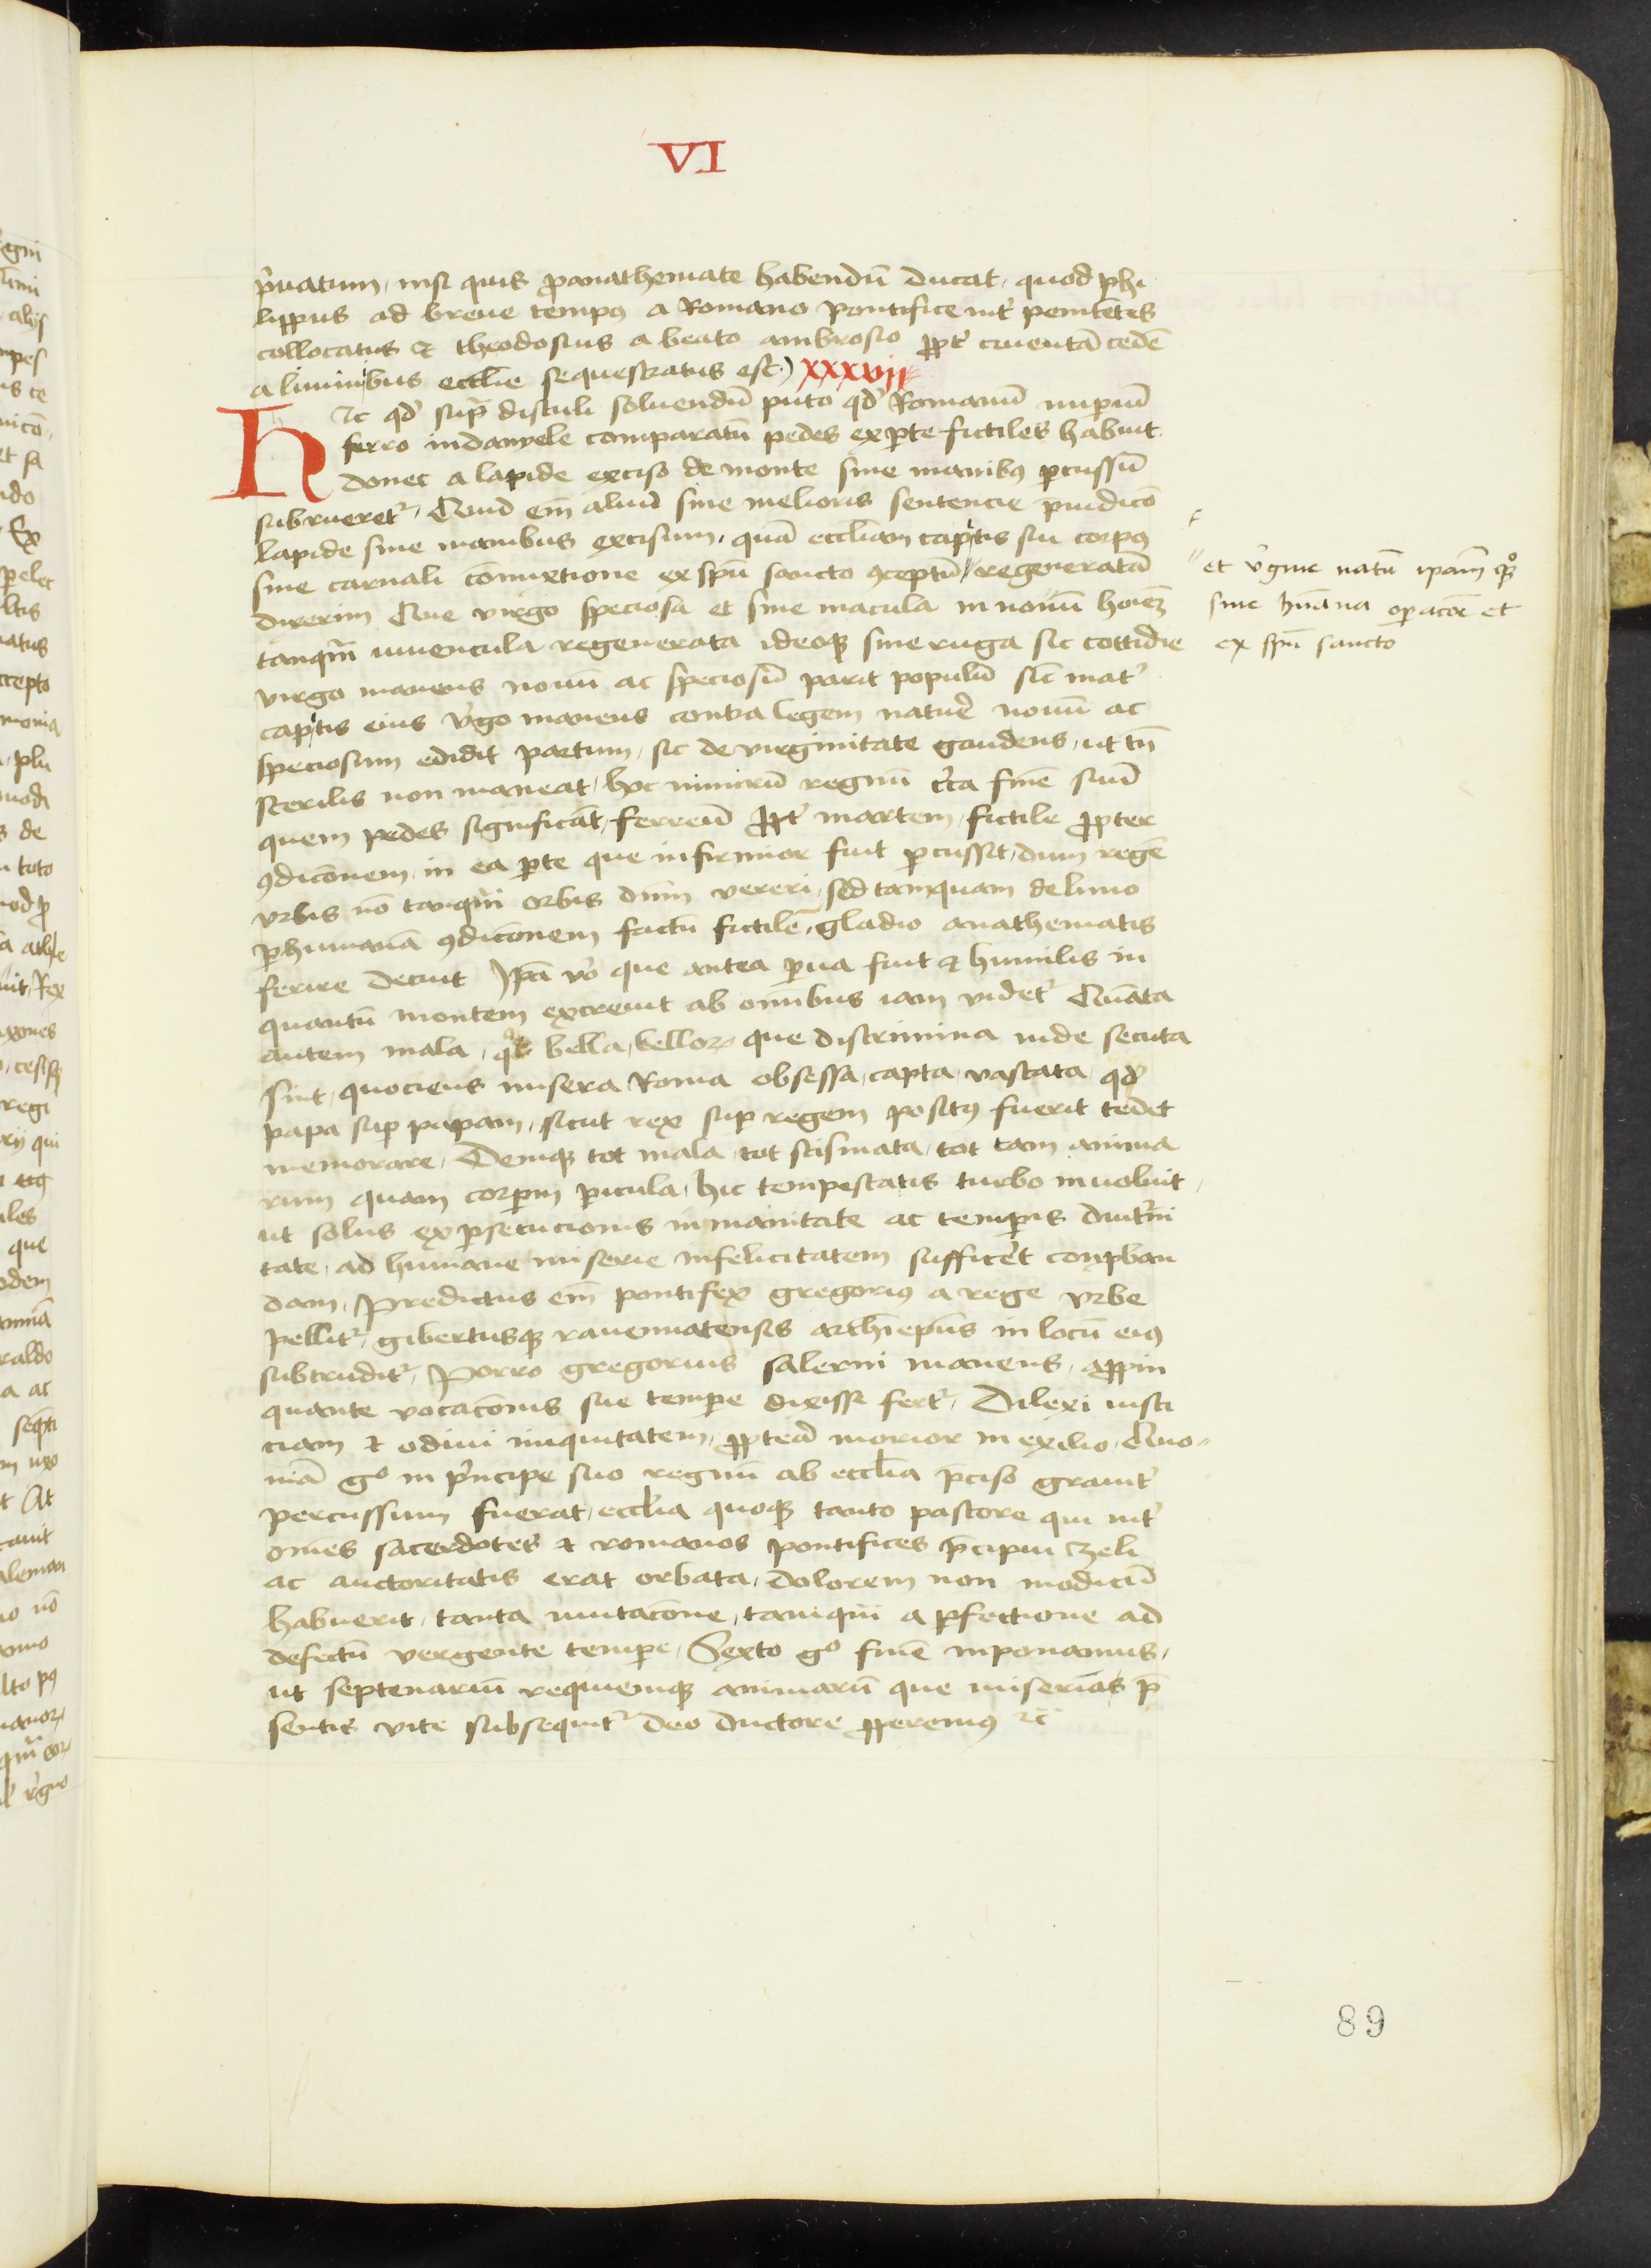 VI
p̾uatum, nisi quis ꝓ anathemate habendū ducat, quod phi
lippus ad breue tempꝰ a Romano pontifice int̾ penitētes
collocatus & theodosius a beato ambrosio ꝓpt̾ cruentā cedē
a liminibus eccl̄ie sequestratus est. xxxvij
Hic qd̾ sup̄ distuli soluendū puto qd̾ Romanū imꝑiū
ferro in danyele comparatū pedes ex ꝑte fictiles habuit
donec a lapide exciso de monte sine manibꝰ ꝑcussū
subrueret̾, Quid em̄ aliud sine melioris sentencie p̄iudico
lapide sine manibus excisum, quā eccl̄iam capitis sui corpꝰ
sine carnali cōmixtione ex spū sancto ꝯceptū // regeneratā
dixerim Que virgo speciosa et sine macula in nouū hoīez
tanqm̄ iuuencula regenerata ideoqꝫ sine ruga sic cottidie
virgo manens nouū ac speciosū parit populū sic mat̾
capitis eius v̾go manens contra legem nature nouū ac
speciosum edidit partum, sic de virginitate gaudens, ut tn̄
sterilis non maneat, hec nimirū regnū c̾ca finē suū
quem pedes significāt, ferreū ꝓpt̾ martem, fictile ꝓpter
ꝯdicōnem, in ea ꝑte que infirmior fuit ꝑcussit, dum regē
vrbis nō tanqm̄ orbis dn̄m vereri, sed tamquam de limo
ꝑ humanā ꝯdicōnem factū fictilē, gladio anathematis
ferire decuit Ip̄a vo̾ que antea ꝑua fuit & humilis in
quantū montem excreuit ab omnibus iam videt̾ Quāta
autem mala, qͦt bella, belloꝝ que discrimina inde secuta
sint, quociens misera Roma obsessa, capta, vastata, qd̾
papa sup papam, sicut rex sup regem positꝰ fuerit tedet
memorare, Deniqꝫ tot mala, tot scismata, tot tam anima
rum quam corpm ꝑicula, hic tempestatis turbo inuoluit,
ut solus ex ꝑsecucionis inmanitate ac tempis diut̾ni
tate, ad humane miserie infelicitatem sufficet conꝓban
dam, Predictus em̄ pontifex gregoriꝰ a rege vrbe
pellit̾, gibertusqꝫ rauennatensis archiepūs in locū eiꝰ
subtrudit̾, Porro gregorius salerni manens, appin
quante vocacōnis sue tempe dixisse fert̾, Dilexi iusti
ciam & odiui iniquitatem, ꝓpterea morior in exilio, Quo-
niā gͦ in p̾ncipe suo regnū ab eccl̄ia p̄ciso grauit̾
percussum fuerat, eccl̄ia quoqꝫ tanto pastore qui int̾
om̄es sacerdotes & romanos pontifices p̄cipui czeli
ac auctoritatis erat orbata, dolorem non modicū
habuerit, tanta mutacōne, tamqm̄ a ꝑfectione ad
defectū vergente tempe, Sexto gͦ finē inponamus,
ut septenariū requiemqꝫ animarū que miserias p̄
sentis vite subsequit̾ deo ductore ꝓperemꝰ &c̄
// et v̾gine natū ipam̄ qꝫ
sine hūana opacōe et
ex spū sancto
89